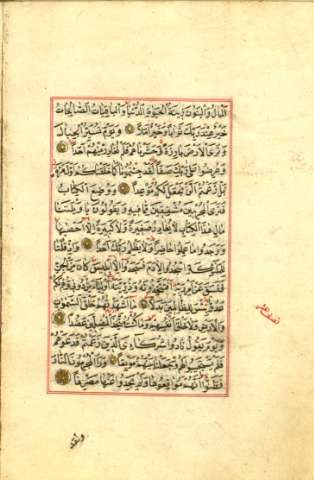 اَلْمَالُ وَالْبَنُونَ زِينَةُ الْحَيٰوةِ الدُّنْيَا وَالْبَاقِيَاتُ الصَّالِحَاتُ
خَيْرٌ عِنْدَ رَبِّكَ ثَوَابًا وَخَيْرٌ اَمَلًا وَيَوْمَ نُسَيِّرُ الْجِبَالَ
وَتَرَى الْاَرْضَ بَارِزَةً وَحَشَرْنَاهُمْ فَلَمْ نُغَادِرْ مِنْهُمْ اَحَدًا
وَعُرِضُوا عَلٰى رَبِّكَ صَفًّا لَقَدْ جِئْتُمُونَا كَمَا خَلَقْنَاكُمْ اَوَّلَ مَرَّةٍ
بَلْ زَعَمْتُمْ اَلَّنْ نَجْعَلَ لَكُمْ مَوْعِدًا وَوُضِعَ الْكِتَابُ
فَتَرَى الْمُجْرِمِينَ مُشْفِقِينَ مِمَّا فِيهِ وَيَقُولُونَ يَا وَيْلَتَنَا
مَالِ هٰذَا الْكِتَابِ لَا يُغَادِرُ صَغِيرَةً وَلَا كَبِيرَةً اِلَّا اَحْصٰيهَا
وَوَجَدُوا مَا عَمِلُوا حَاضِرًا وَلَا يَظْلِمُ رَبُّكَ اَحَدًا وَاِذْ قُلْنَا
لِلْمَلٰئِكَةِ اسْجُدُوا لِاٰدَمَ فَسَجَدُوا اِلَّا اِبْلِيسَ كَانَ مِنَ الْجِنِّ
فَفَسَقَ عَنْ اَمْرِ رَبِّهِ اَفَتَتَّخِذُونَهُ وَذُرِّيَّتَهُ اَوْلِيَاءَ مِنْ دُونِي وَهُمْ لَكُمْ
عَدُوٌّ بِئْسَ لِلظَّالِمِينَ بَدَلًا مَا اَشْهَدْتُهُمْ خَلْقَ السَّمٰوَاتِ
وَالْاَرْضِ وَلَا خَلْقَ اَنْفُسِهِمْ وَمَا كُنْتُ مُتَّخِذَ الْمُضِلِّينَ عَضُدًا
وَيَوْمَ يَقُولُ نَادُوا شُرَكَاءِيَ الَّذِينَ زَعَمْتُمْ فَدَعَوْهُمْ
فَلَمْ يَسْتَجِيبُوا لَهُمْ وَجَعَلْنَا بَيْنَهُمْ مَوْبِقًا وَرَاَ الْمُجْرِمُونَ النَّارَ
فَظَنُّوا اَنَّهُمْ مُوَاقِعُوهَا وَلَمْ يَجِدُوا عَنْهَا مَصْرِفًا
ولقد